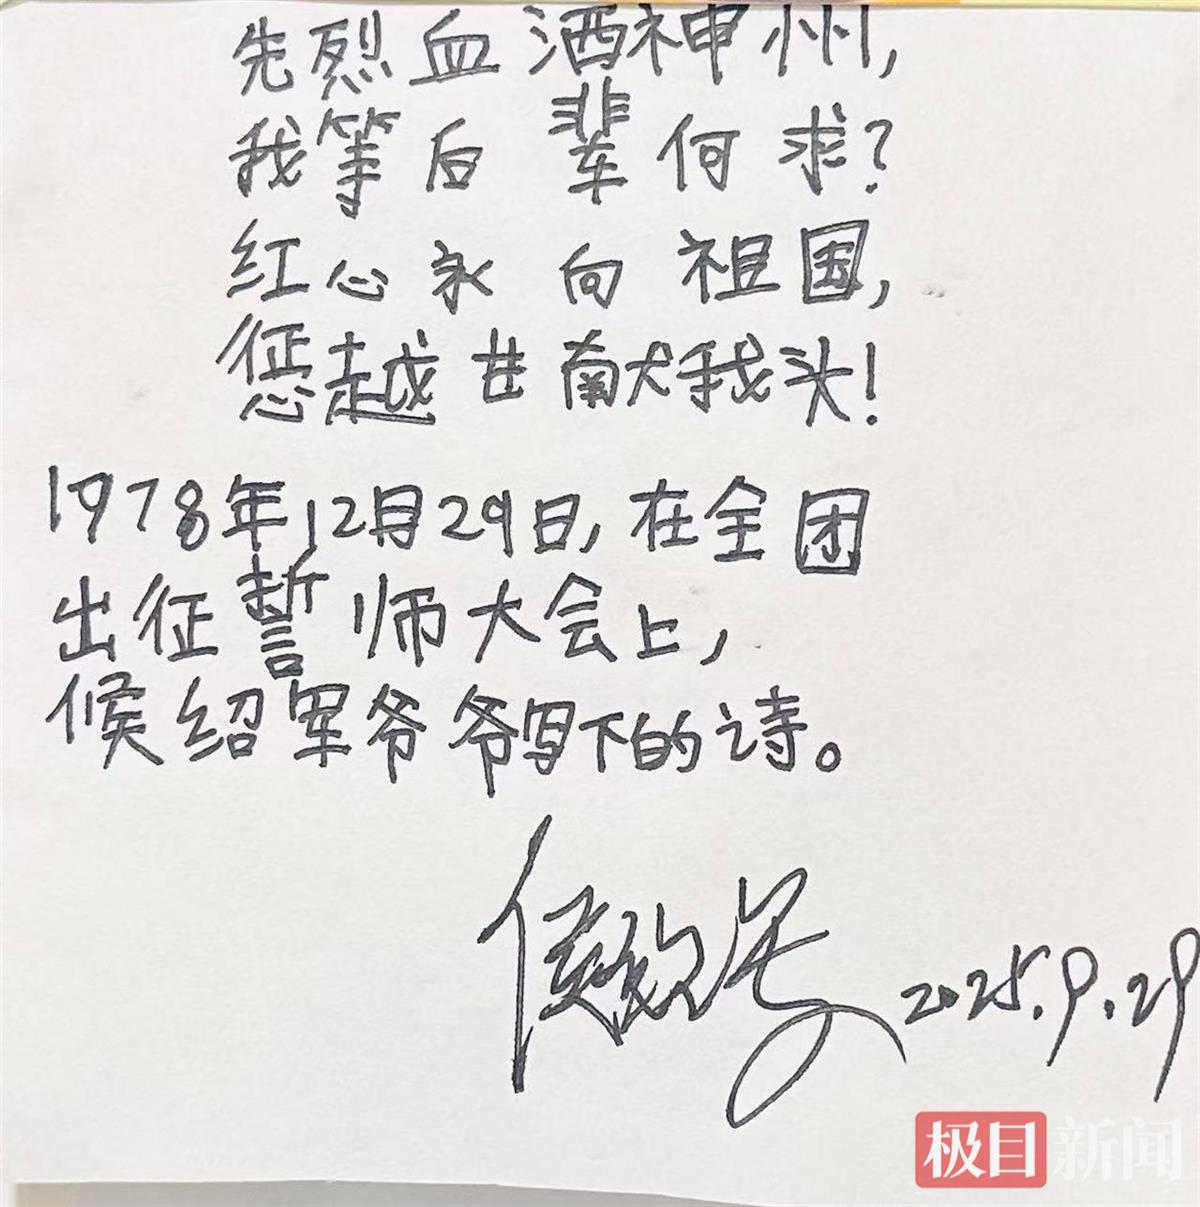 先烈血洒神州，
我等后辈何求？
红心永向祖国，
惩越甘献我头！
1978年12月29日，在全团
出征誓师大会上，
候绍军爷爷写下的诗。
2025.9.29
极目新闻